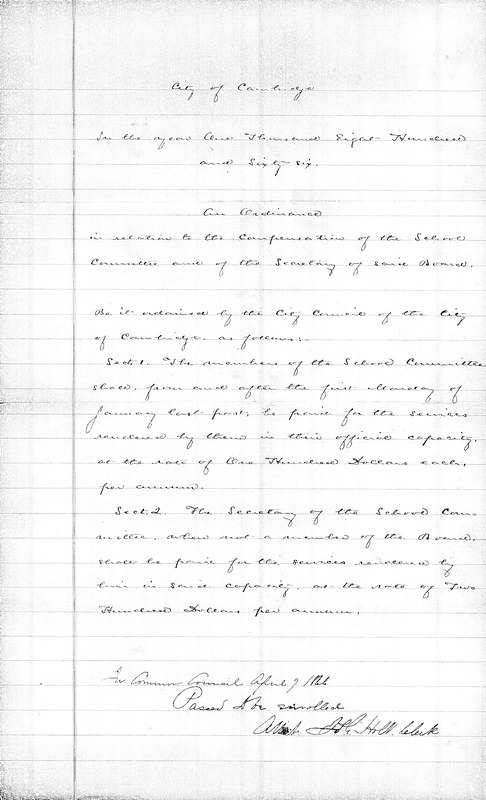 City of Cambridge
In the year One Thousand Eight Hundred
and Sixty six.
An Ordinance
in relation to the Compensation of the School
Committee and of the Secretary of said Board.
Be it ordained by the City Council of the City
of Cambridge, as follows:
Sect: 1. The members of the School Committee
shall, from and after the first Monday of
January last past, be paid for the services
rendered by them in their official capacity,
at the rate of One Hundred Dollars each,
per annum.
Sect: 2. The Secretary of the School Com
mittee, when not a member of the Board,
shall be paid for the services rendered by
him in said capacity, at the rate of Two
Hundred Dollars per annum.
In Common Council April 7 1866
Passed to be enrolled
Attest Holt. Clerk